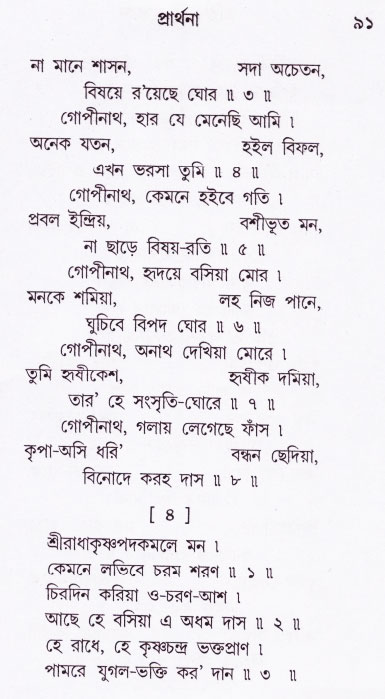 প্রার্থনা ৯১
না মানে শাসন, সদা অচেতন,
বিষয়ে র'য়েছে ঘোর ॥ ৩ ॥
গোপীনাথ, হার যে মেনেছি আমি ।
অনেক যতন, হইল বিফল,
এখন ভরসা তুমি ॥ ৪ ॥
গোপীনাথ, কেমনে হইবে গতি ।
প্রবল ইন্দ্রিয়, বশীভূত মন,
না ছাড়ে বিষয়-রতি ॥ ৫ ॥
গোপীনাথ, হৃদয়ে বসিয়া মোর ।
মনকে শমিয়া, লহ নিজ পানে,
ঘুচিবে বিপদ ঘোর ॥ ৬ ॥
গোপীনাথ, অনাথ দেখিয়া মোরে ।
তুমি হৃষীকেশ, হৃষীক দমিয়া,
তার' হে সংসৃতি-ঘোরে ॥ ৭ ॥
গোপীনাথ, গলায় লেগেছে ফাঁস ।
কৃপা-অসি ধরি' বন্ধন ছেদিয়া,
বিনোদে করহ দাস ॥ ৮ ॥
[ ৪ ]
শ্রীরাধাকৃষ্ণপদকমলে মন ।
কেমনে লভিবে চরম শরণ ॥ ১ ॥
চিরদিন করিয়া ও-চরণ-আশ ।
আছে হে বসিয়া এ অধম দাস ॥ ২ ॥
হে রাধে, হে কৃষ্ণচন্দ্র ভক্তপ্রাণ ।
পামরে যুগল-ভক্তি কর' দান ॥ ৩ ॥